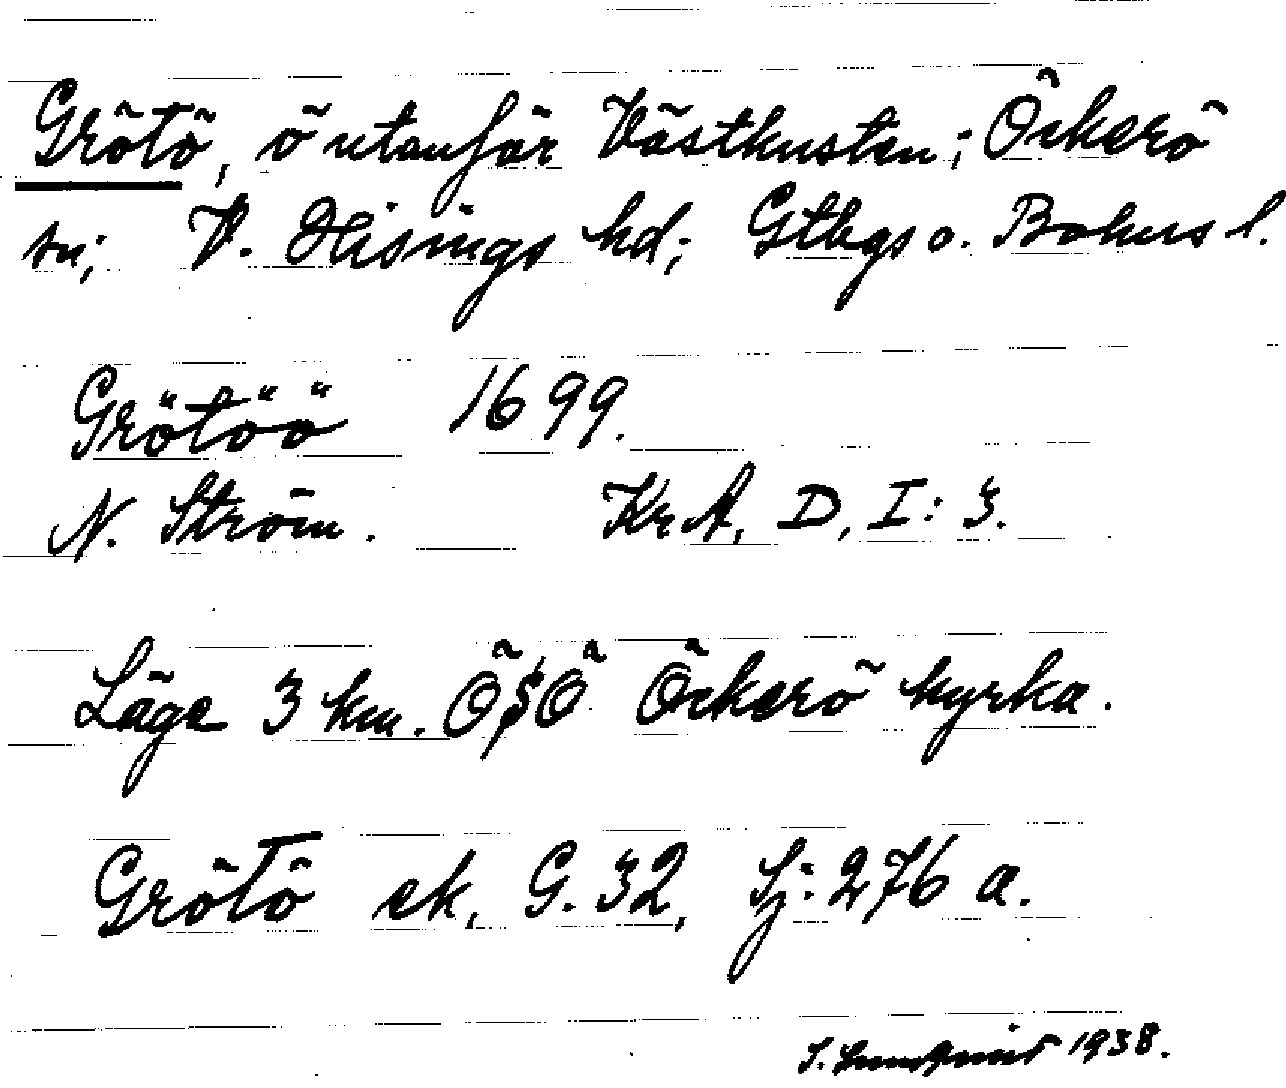 Grötö, ö utanför Västkusten; Öckerö
sn; V. Hisings hd; Gtbgs o. Bohus l.
Grötöö 1699.
N. Ström. KrA, D, I: 3.
Läge 3 km. ÖSÖ Öckerö kyrka.
Grötö ek, G. 32, Sj: 276 a.
1938.